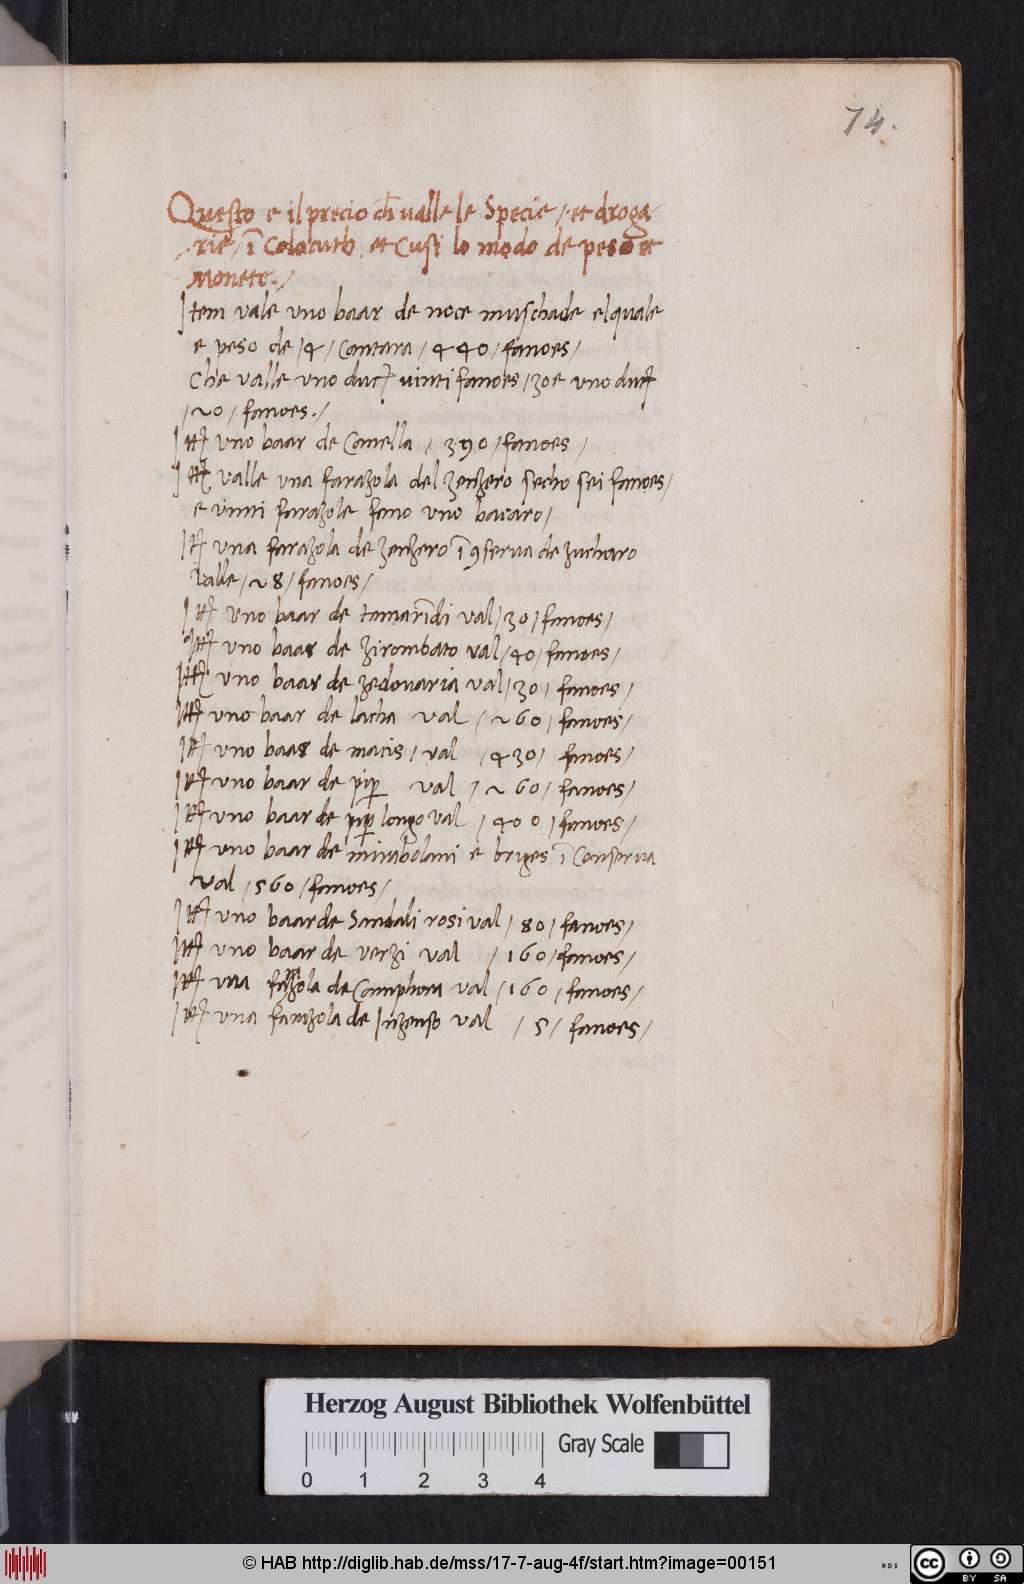 74.
Questo e il precio ch valle le Specie / et droga
/ rie / ī Colocuth et Cusi lo modo de peso et
Monete . /
Item vale uno baar de noce muschade elquale
e peso de / 4 / Cantara / 440 / fanoes /
Che valle uno duct vinti fanoes / zoe uno duct
/ 20 / fanoes . /
It uno baar de Canella / 390 / fanoes /
It valle una farazola del zenzero secho sei fanoes /
e vinti farazole fano uno bacaro /
It una farazola de zenzero ī 9serva de zucharo
valle / 28 / fanoes /
It uno baar de tamarīdi val / 30 / fanoes /
It uno baar de zirombato val / 40 / fanoes /
It uno baar de zedovaria val / 30 / fanoes /
It uno baar de lacha val / 260 / fanoes /
It uno baar de macis / val / 430 / fanoes /
It uno baar de pip val / 260 / fanoes /
It uno baar de pip longo val / 400 / fanoes /
It uno baar de mirabolani e briges ī Conserva
val / 560 / fanoes /
It uno baar de Sandali rosi val / 80 / fanoes /
It uno baar de verzi val / 160 / fanoes /
It una farazola de Camphora val / 160 / fanoes /
It una farazola de Inzenso val / 5 / fanoes /
Herzog August Bibliothek Wolfenbüttel
0 1 2 3 4 Gray Scale
© HAB http://diglib.hab.de/mss/17-7-aug-4f/start.htm?image=00151
cc BY SA